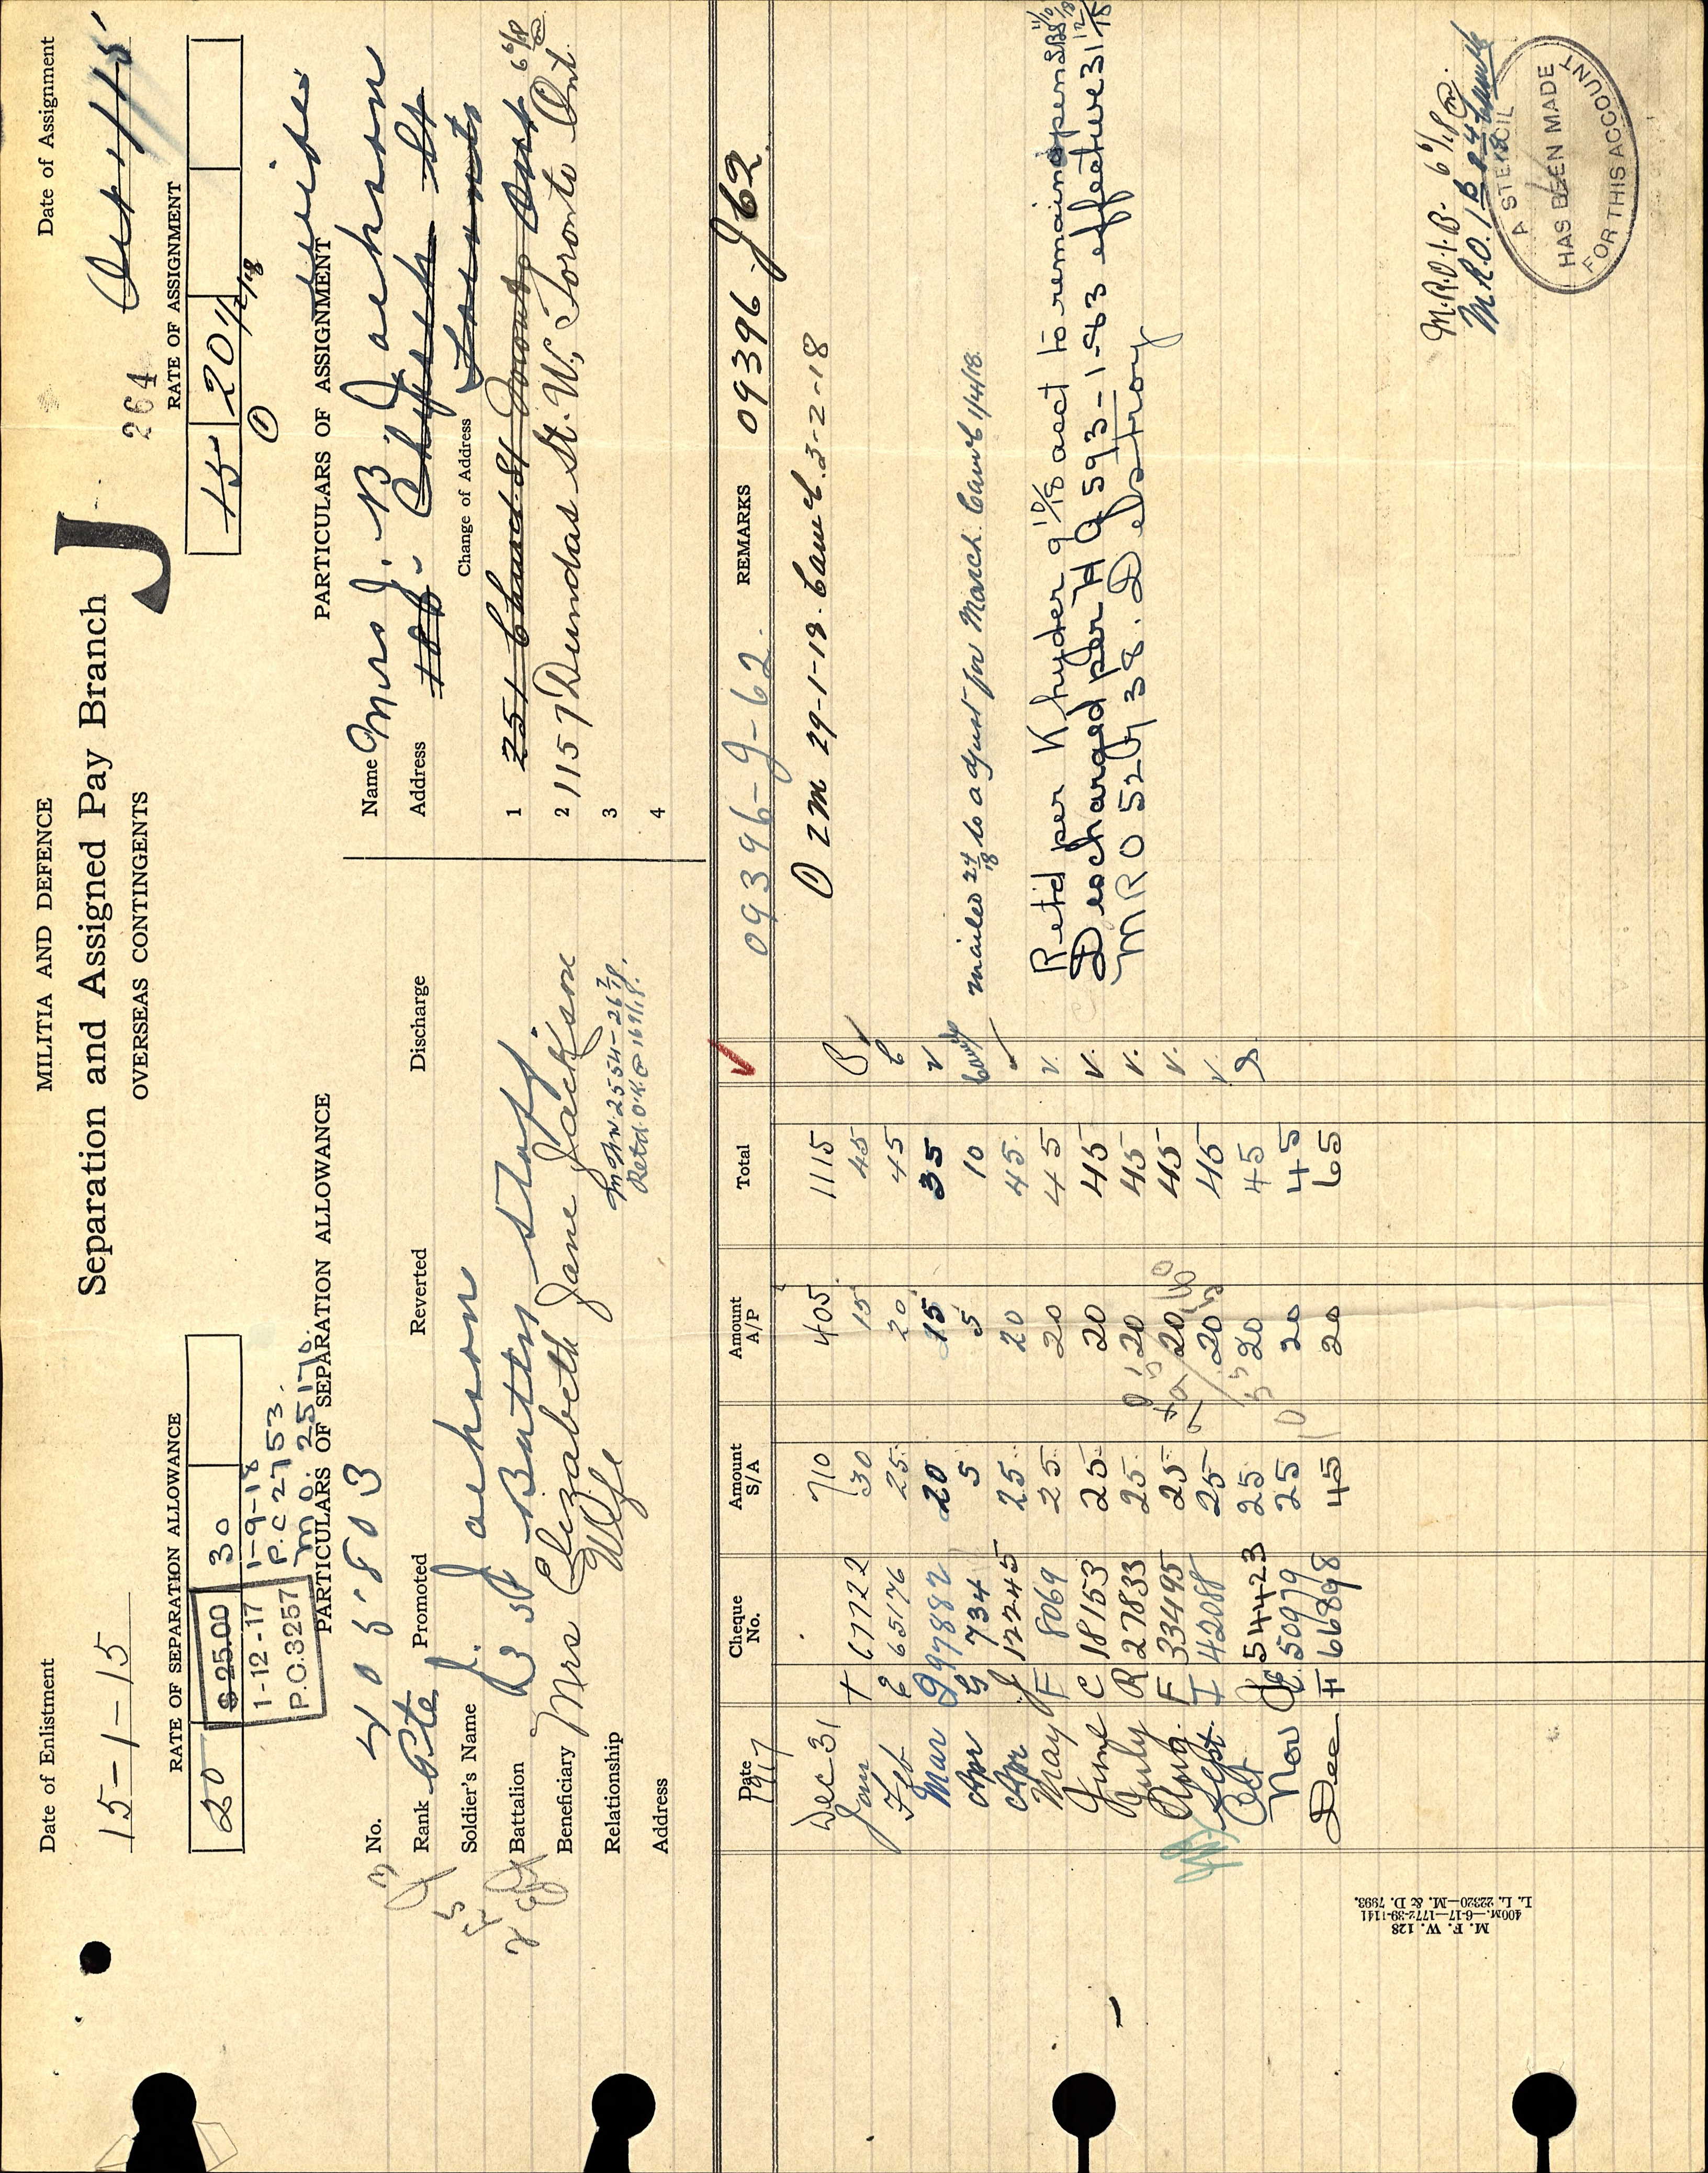 MILITIA AND DEFENCE
Separation and Assigned Pay Branch
OVERSEAS CONTINGENTS
J
264
Date of Enlistment
15-1-15
Date of Assignment
RATE OF SEPARATION ALLOWANCE
20 $25.00 30
1-12-17 1-9-18
P.C.3257 P.C 2753.
M O. 25170.
RATE OF ASSIGNMENT
15 20 1/2/18
PARTICULARS OF SEPARATION ALLOWANCE
No. 405803
Rank Pte Promoted Reverted Discharge
Soldier's Name J. Jackson
Battalion Battn Staff.
Beneficiary Mrs Elizabeth Jane Jackson
Relationship Wife
Address
PARTICULARS OF ASSIGNMENT
Name Mrs. J. B. Jackson
Address
Change of Address
1 251 Church St Toronto Ont
2 1157 Dundas St. W., Toronto Ont.
3
4
Date Cheque No. Amount S/A Amount A/P Total REMARKS 09396 J62
1917 09396-J-62.
Dec 31 710 405 1115
Jan 67722 30 15 45
Feb 65176 25 20 45
Mar 97882 20 15 35
Apr 734 5 5 10
Apr 12245 25 20 45
May F 8069 25 20 45
June C 18153 25 20 45
July R 27833 25 20 45
Aug. F 33495 25 20 45
Sept. F 42088 25 20 45
Oct 54423 25 20 45
Nov 50979 25 20 45
Dec F 66898 45 20 65
29-1-18. Canc'l. 3-2-18
mailed 24/18 to adjust for March. Canc'l 1/4/18.
Ret'd per Khyder 9 10/18 acct to remain open
Discharged per HQ 593-1-63 effective 31 12/18
MRO 52 38. Destroy
M.R.O.
A STENCIL
HAS BEEN MADE
FOR THIS ACCOUNT
M. F. W. 128
400M.—6-17—1772-39-1141
L. L. 22320—M. & D. 7993.